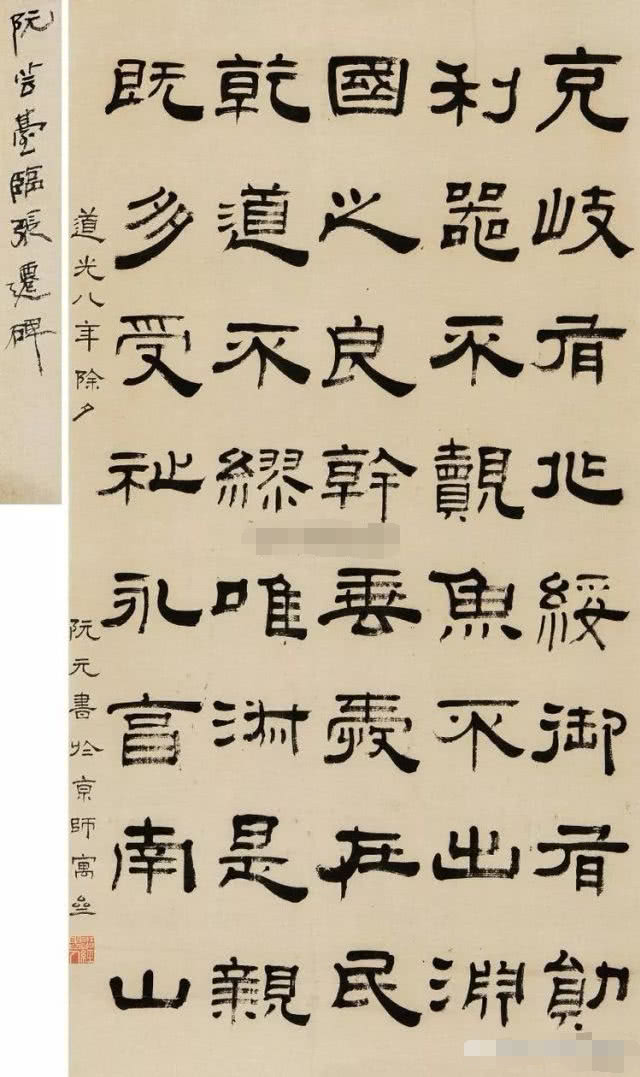 克岐有兆綏御有勛
利器不覿魚不出淵
國之良幹垂愛在民
乾道不繆唯淑是親
既多受祉永享南山
道光八年除夕
阮元書於京師寓
阮芸臺臨張遷碑